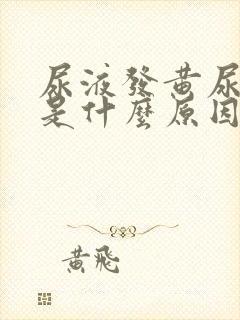 尿液發黃尿
是什麼原因
黃飛